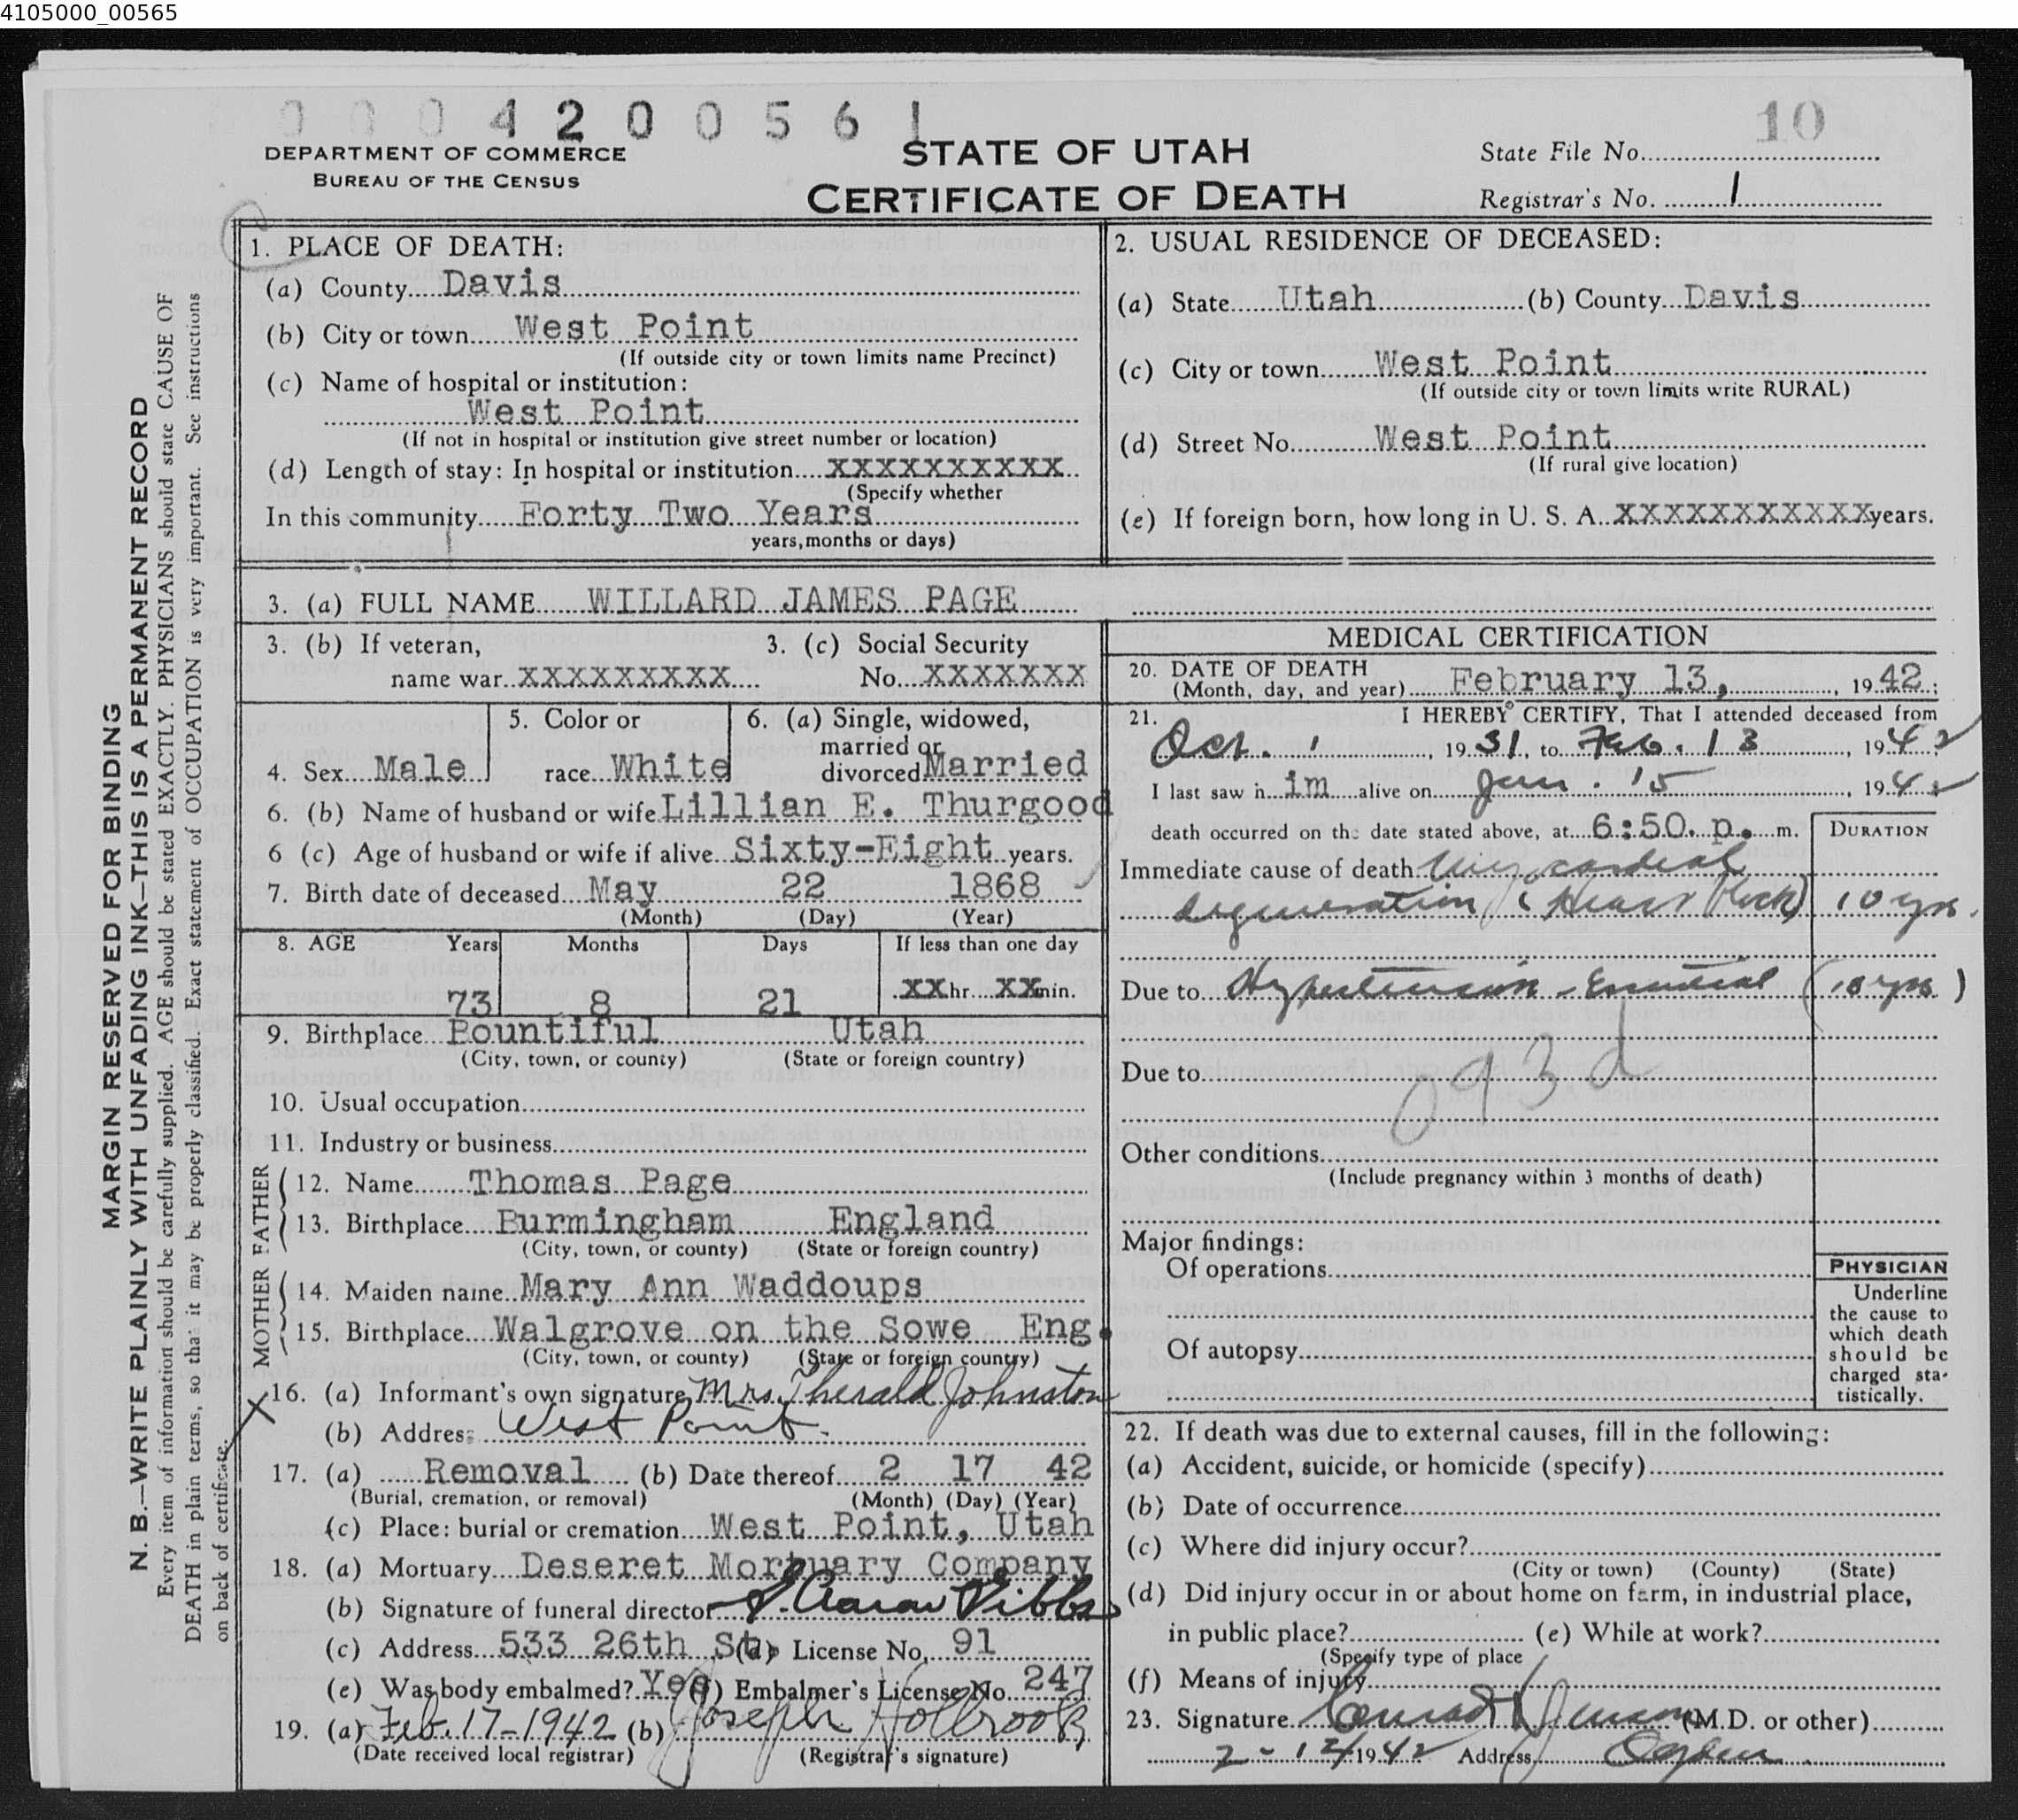 4105000_00565
0 0 0 4 2 0 0 5 6 1
10
DEPARTMENT OF COMMERCE
BUREAU OF THE CENSUS
STATE OF UTAH
CERTIFICATE OF DEATH
State File No.
Registrar's No. 1
MARGIN RESERVED FOR BINDING
N. B.—WRITE PLAINLY WITH UNFADING INK—THIS IS A PERMANENT RECORD
Every item of information should be carefully supplied. AGE should be stated EXACTLY. PHYSICIANS should state CAUSE OF
DEATH in plain terms, so that it may be properly classified. Exact statement of OCCUPATION is very important. See instructions
on back of certificate.
1. PLACE OF DEATH:
(a) County Davis
(b) City or town West Point
(If outside city or town limits name Precinct)
(c) Name of hospital or institution:
West Point
(If not in hospital or institution give street number or location)
(d) Length of stay: In hospital or institution XXXXXXXXXX
(Specify whether
In this community Forty Two Years
years, months or days)
2. USUAL RESIDENCE OF DECEASED:
(a) State Utah (b) County Davis
(c) City or town West Point
(If outside city or town limits write RURAL)
(d) Street No. West Point
(If rural give location)
(e) If foreign born, how long in U. S. A. XXXXXXXXXXX years.
3. (a) FULL NAME WILLARD JAMES PAGE
3. (b) If veteran,
name war XXXXXXXXX
3. (c) Social Security
No. XXXXXXX
4. Sex Male
5. Color or
race White
6. (a) Single, widowed,
married or
divorced Married
6. (b) Name of husband or wife Lillian E. Thurgood
6 (c) Age of husband or wife if alive Sixty-Eight years.
7. Birth date of deceased May 22 1868
(Month) (Day) (Year)
8. AGE Years Months Days If less than one day
73 8 21 XX hr. XX min.
9. Birthplace Bountiful Utah
(City, town, or county) (State or foreign country)
10. Usual occupation
11. Industry or business
FATHER
12. Name Thomas Page
13. Birthplace Burmingham England
(City, town, or county) (State or foreign country)
MOTHER
14. Maiden name Mary Ann Waddoups
15. Birthplace Walgrove on the Sowe Eng.
(City, town, or county) (State or foreign country)
X 16. (a) Informant's own signature Mrs. Therald Johnston
(b) Address West Point.
17. (a) Removal (b) Date thereof 2 17 42
(Burial, cremation, or removal) (Month) (Day) (Year)
(c) Place: burial or cremation West Point, Utah
18. (a) Mortuary Deseret Mortuary Company
(b) Signature of funeral director
(c) Address 533 26th St. (d) License No. 91
(e) Was body embalmed? Yes (f) Embalmer's License No. 247
19. (a) Feb. 17-1942 (b) Joseph Holbrook
(Date received local registrar) (Registrar's signature)
MEDICAL CERTIFICATION
20. DATE OF DEATH
(Month, day, and year) February 13, 1942;
21. I HEREBY CERTIFY, That I attended deceased from
Oct. 1, 1931, to Feb. 13, 1942
I last saw him alive on Jan. 15, 1942
death occurred on the date stated above, at 6:50. p. m.
DURATION
Immediate cause of death Myocardial
degeneration (Heart Block) 10 yrs.
Due to Hypertension - Essential (10 yrs)
Due to
093d
Other conditions
(Include pregnancy within 3 months of death)
Major findings:
Of operations
Of autopsy
PHYSICIAN
Underline
the cause to
which death
should be
charged sta-
tistically.
22. If death was due to external causes, fill in the following:
(a) Accident, suicide, or homicide (specify)
(b) Date of occurrence
(c) Where did injury occur?
(City or town) (County) (State)
(d) Did injury occur in or about home on farm, in industrial place,
in public place? (e) While at work?
(Specify type of place
(f) Means of injury
23. Signature Conrad Jenson (M.D. or other)
1942 Address Ogden